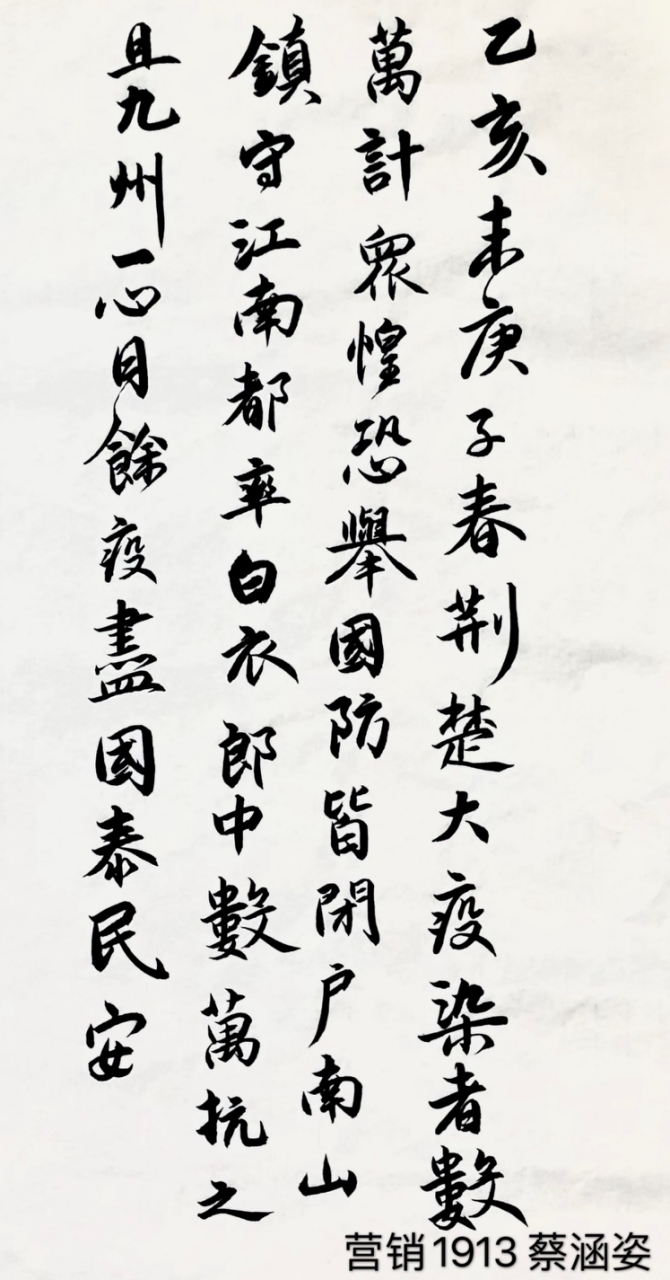 乙亥末庚子春荆楚大疫染者數
萬計眾惶恐舉國防皆閉户南山
鎮守江南都率白衣郎中數萬抗之
且九州一心月餘疫盡國泰民安
营销1913 蔡涵姿